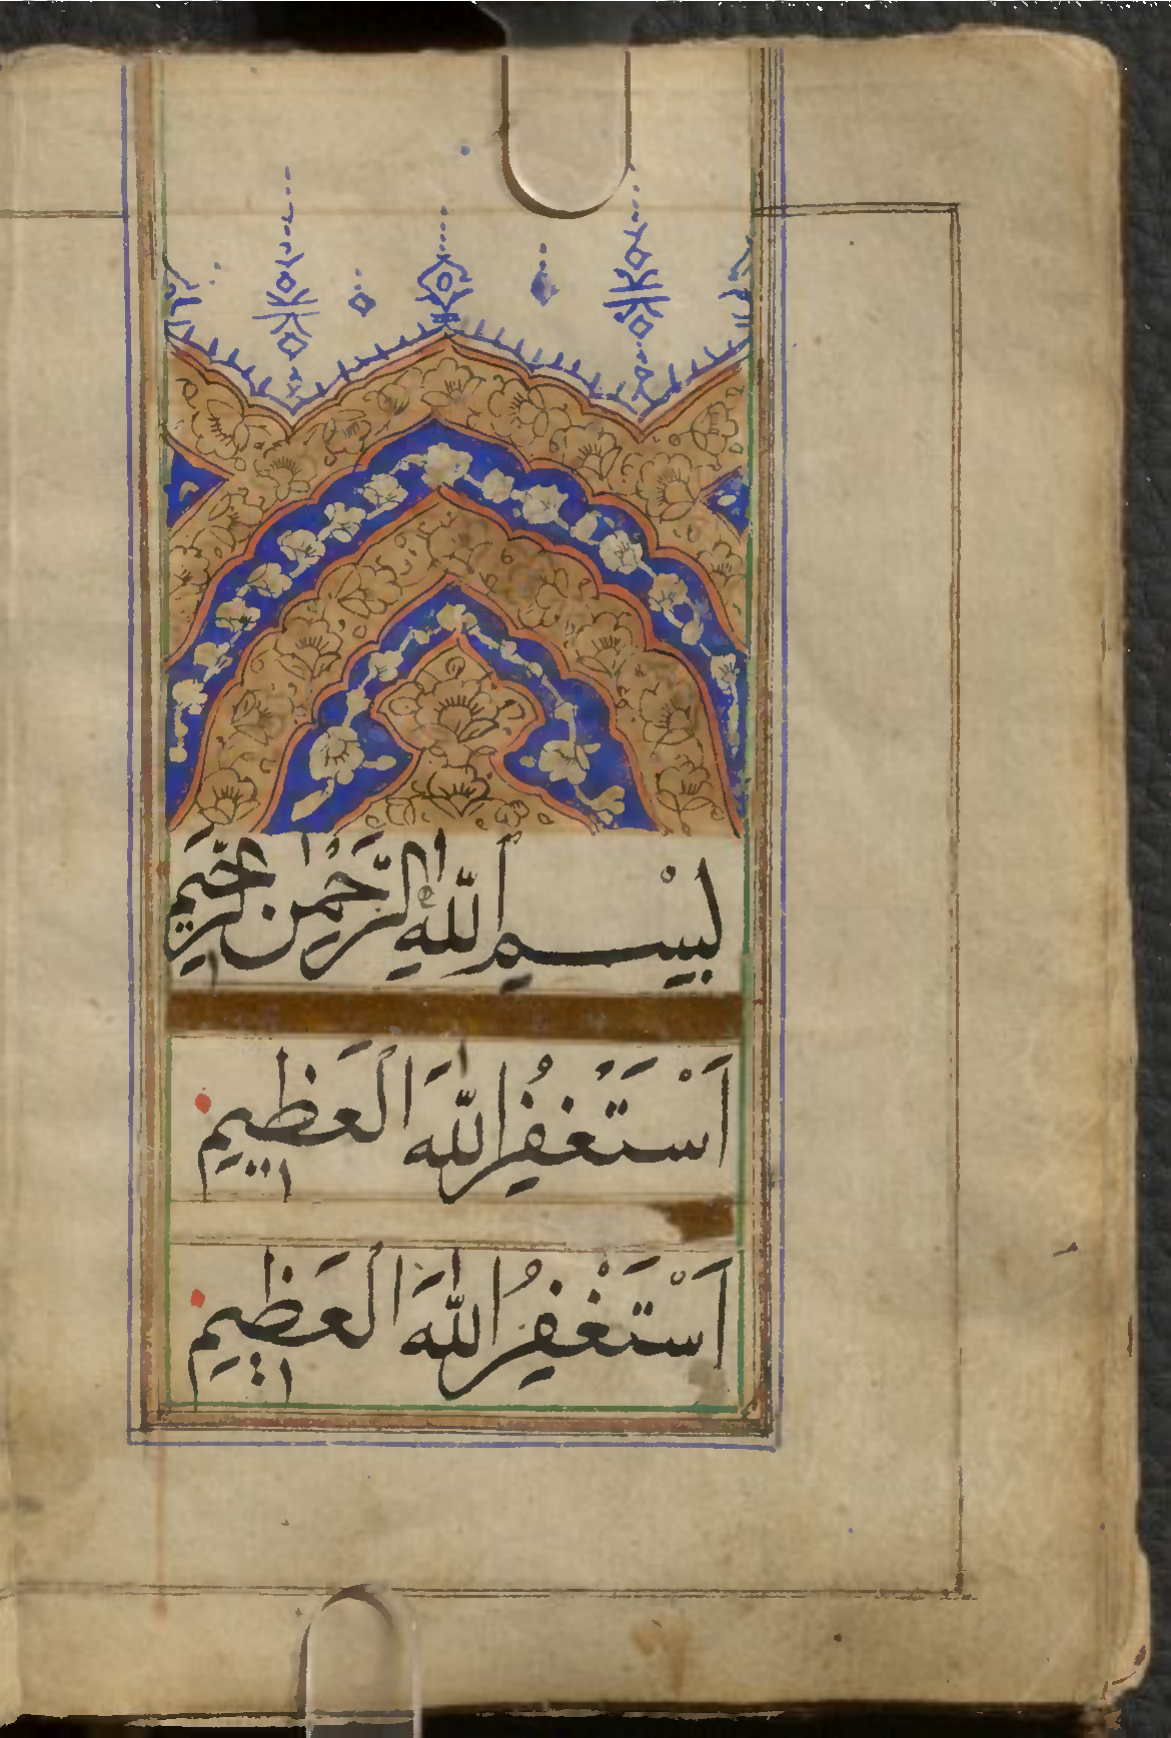 بِسْمِ اللّٰهِ الرَّحْمٰنِ الرَّحِيْمِ
اَسْتَغْفِرُ اللّٰهَ الْعَظِيْمِ
اَسْتَغْفِرُ اللّٰهَ الْعَظِيْمِ